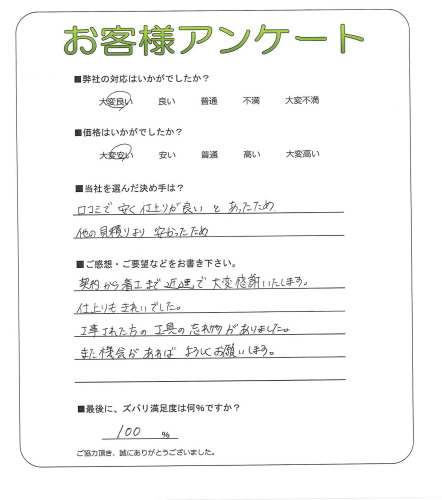 お客様アンケート
■弊社の対応はいかがでしたか？
大変良い 良い 普通 不満 大変不満
■価格はいかがでしたか？
大変安い 安い 普通 高い 大変高い
■当社を選んだ決め手は？
口コミで 安く仕上りが良い と あったため
他の見積りより 安かったため
■ご感想・ご要望などをお書き下さい。
契約から着工まで 迅速で 大変感謝いたします。
仕上りも きれいでした。
工事された方の 工具の忘れ物がありました。
また機会が あれば よろしくお願いします。
■最後に、ズバリ満足度は何%ですか？
100 %
ご協力頂き、誠にありがとうございました。